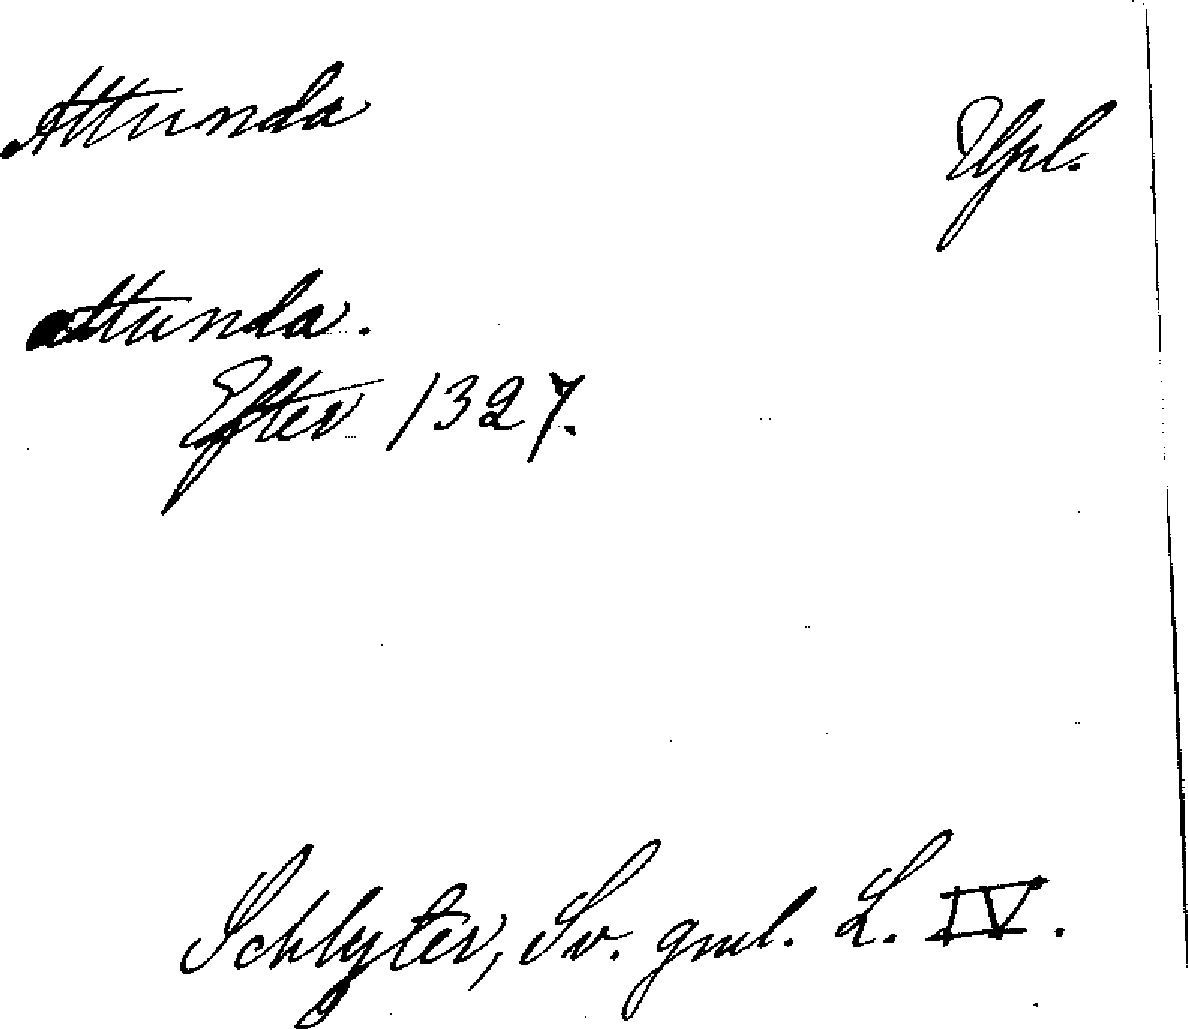 Attunda
Upl.
attunda.
Efter 1327.
Schlyter, Sv. gml. L. IV.